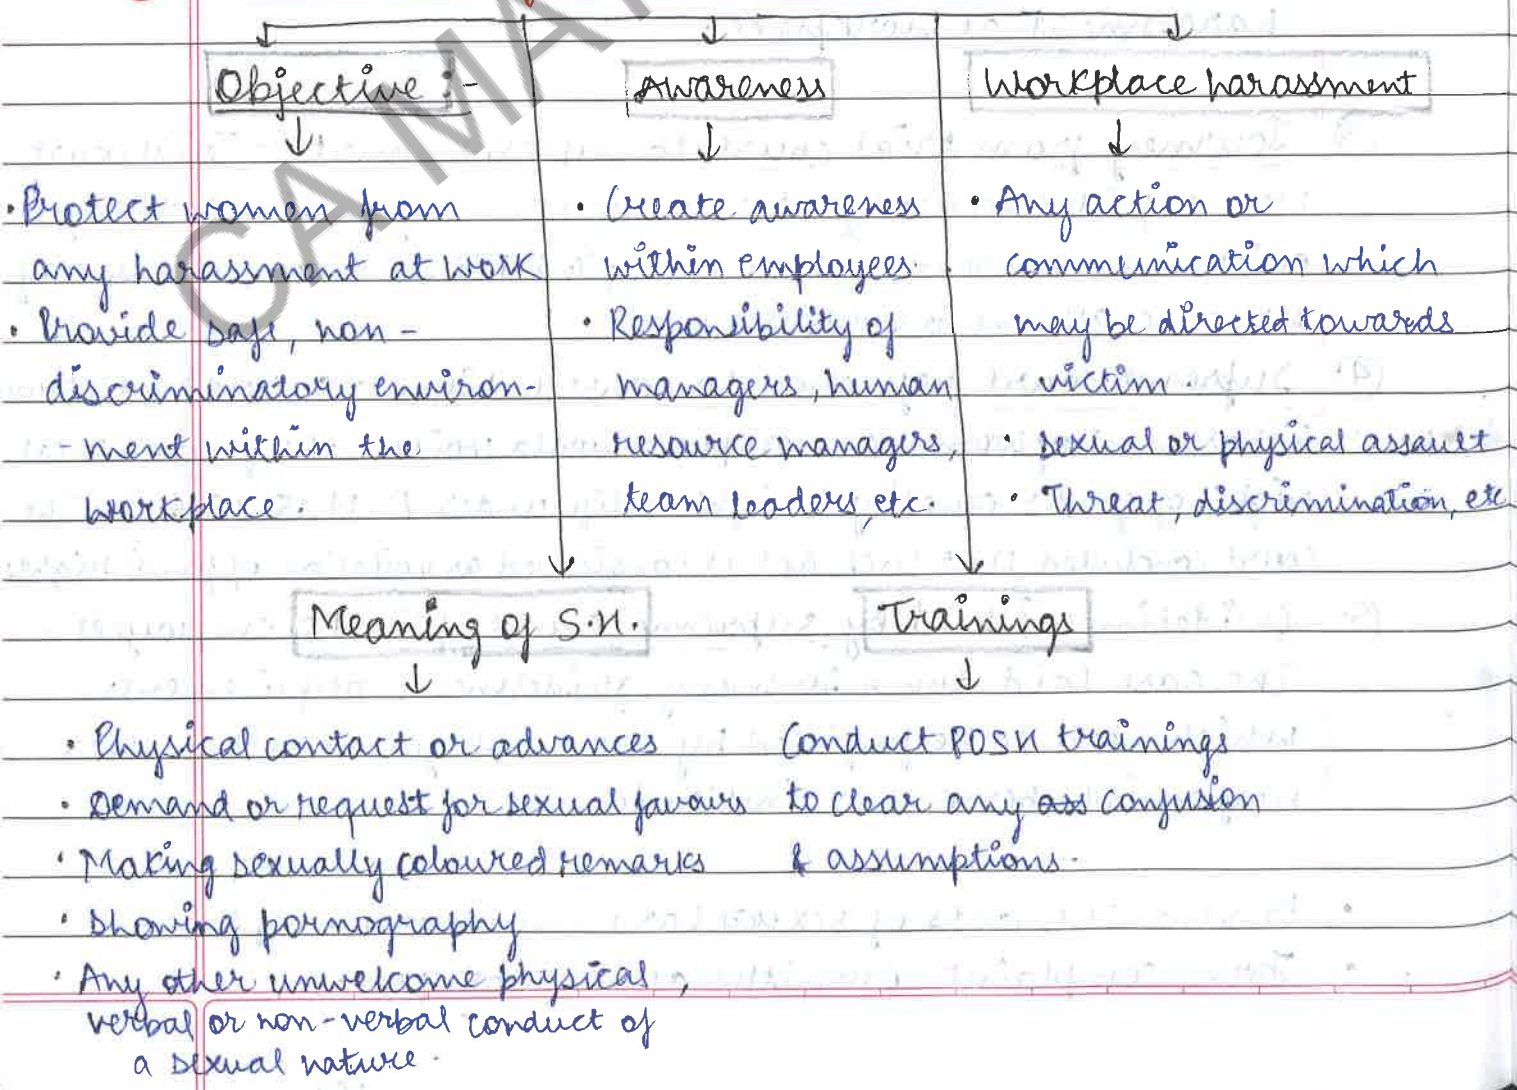 CA MA
Objective :-
Protect women from
any harassment at work
Provide safe, non-
discriminatory environ-
-ment within the
workplace.
Awareness
Create awareness
within employees.
Responsibility of
managers, human
resource managers,
team leaders, etc.
Workplace harassment
Any action or
communication which
may be directed towards
victim.
Sexual or physical assault
Threat, discrimination, etc
Meaning of S.H.
Physical contact or advances
Demand or request for sexual favours
Making sexually coloured remarks
Showing pornography
Any other unwelcome physical,
verbal or non-verbal conduct of
a sexual nature.
Trainings
Conduct POSH trainings
to clear any confusion
& assumptions.